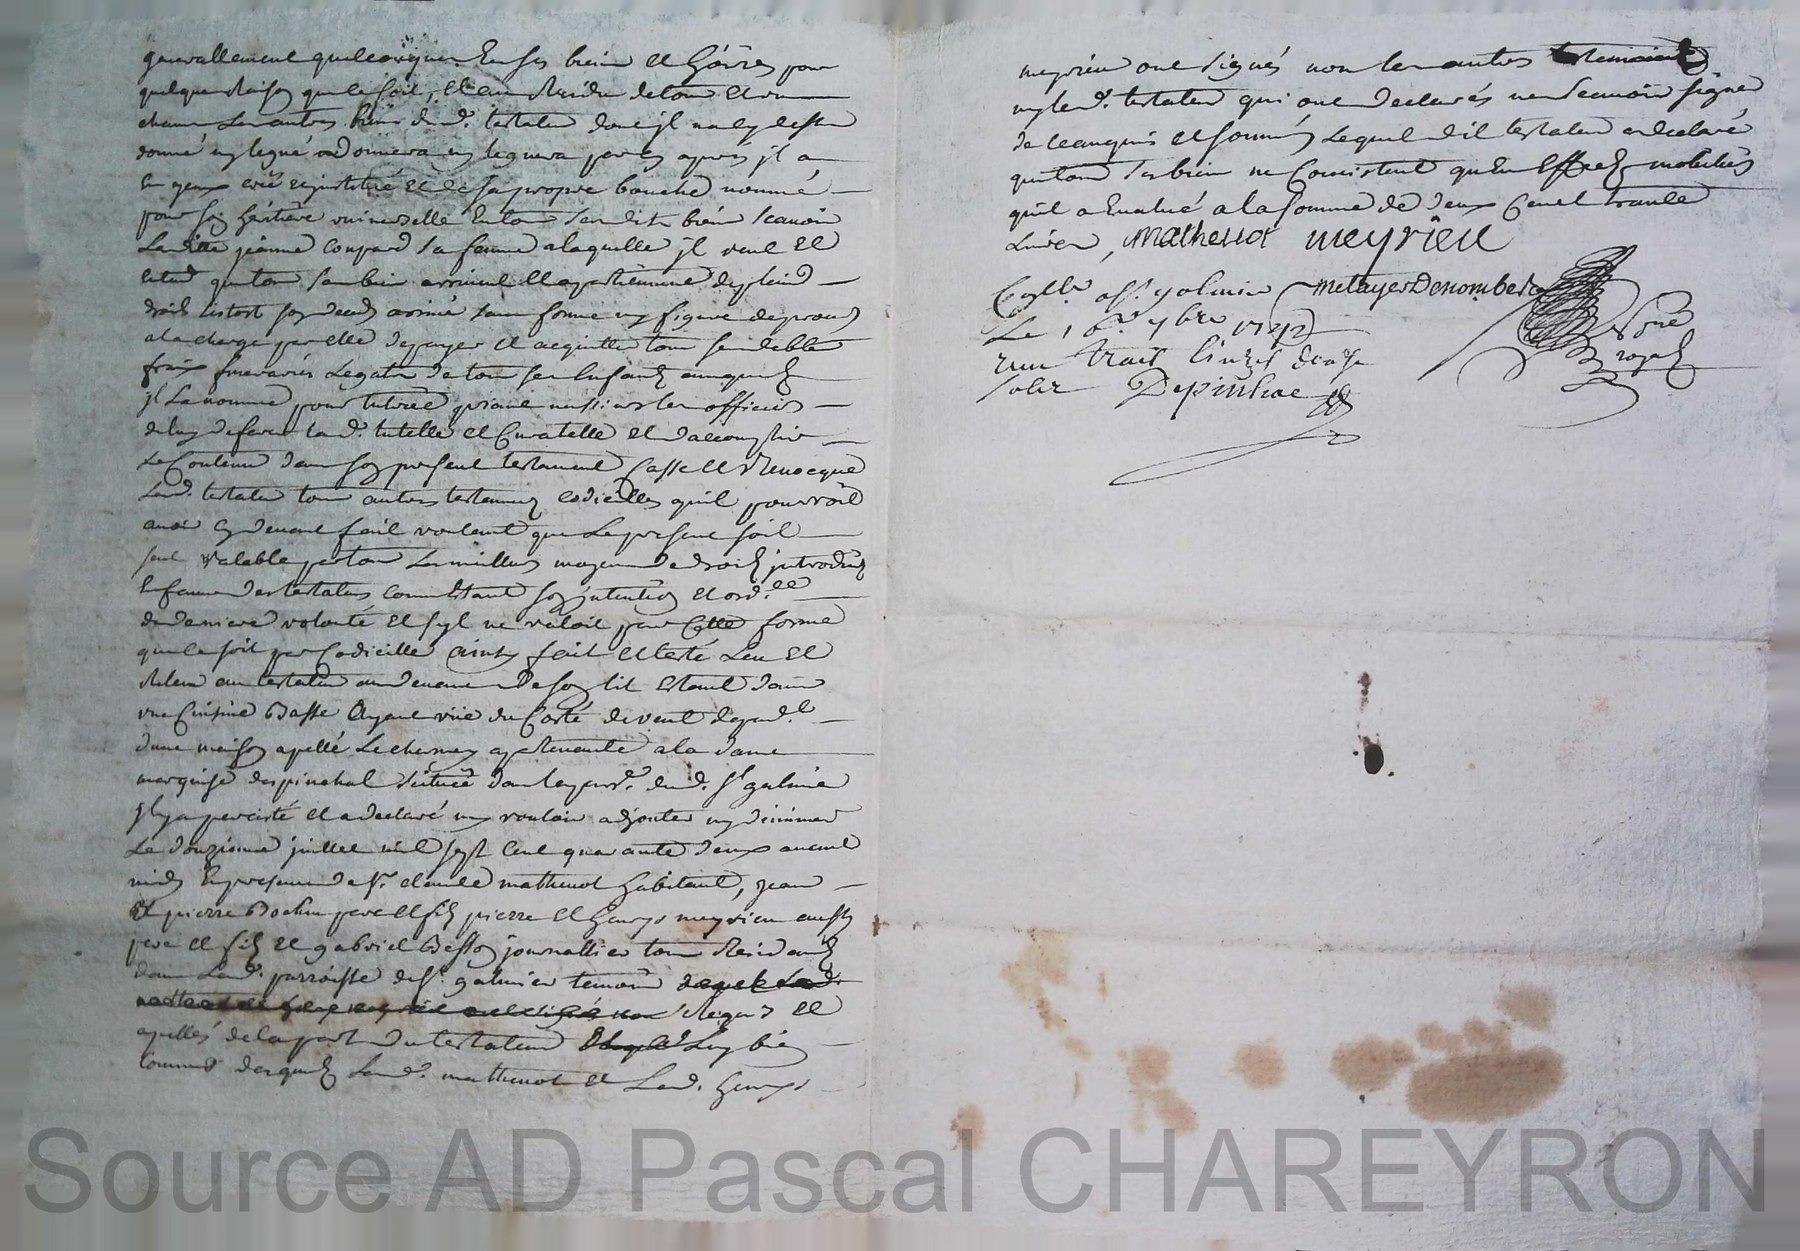 generallement quelconques En ses biens et hoirs pour
quelque Raison que ce soit, et au Residu de tous et un
chacun Les autres biens dud. testateur dont jl na cy dessus
donné ny legué ne donnera ny leguera par cy apres jl a
de sa propre bouche nommé
pour son heritiere universelle En tous sesdits biens scavoir
Laditte jeanne coupard sa femme a laquelle jl veut Et
Entend que tous ses biens appartiennent de plein
droit sans forme ny figure de proces
a la charge par elle de payer et acquitter tous ses debtes
frais funeraires Legats de tous ses Enfants auxquels
jl La nomme pour tutrice priant messieurs les officiers
de luy deferer lad. tutelle et Curatelle et daccomplir
Le Contenu dans son present testament Casse et Revocque
Led. testateur tous autres testaments codicilles quil pourroit
avoir cy devant fait voulant que Le present soit
seul valable par tous Les meilleurs moyens de droit jntroduits
En faveur des testateurs son jntention et ord.ce
de derniere volonté et syl ne valoit par cette forme
que ce soit par Codicille ainsy fait et testé Leu et
Releu au testateur au devant de son lit Estant dans
une Cuisine Basse Ayant vüe du Costé de vent
dune maison apellé Le cherney apartenante a la dame
marquise despinchal scituée dans la parr.e dud. St galmier
jl y a percisté et a declaré ny vouloir adjouter ny diminuer
Le douzieme juillet mil sept Cent quarante deux avant
midy En presence de Sr. claude mathevot habitant, jean
Et pierre Bochu pere et fils pierre et henrys meyrieu aussy
pere et fils et gabriel Besson journallier tous Residants
dans Lad. parroisse de St. galmier temoins
Requis et
apellés de la part du testateur Luy bien
connus desquels Led. mathevot et Led. henrys
meyrieu ont signés non les autres
ny led. testateur qui ont declarés ne scavoir signer
de ce enquis et sommés Lequel dit testateur a declaré
que tous ses biens ne Consistent qu'en Effects mobiliers
quil a Evalué a la somme de deux Cent trante
Livres, Mathevot meyrieu
Coll.e a St. galmier metayer Denombert
Le 16e 7bre 1742 Nore
royal
solz Depinhac
Source AD Pascal CHAREYRON